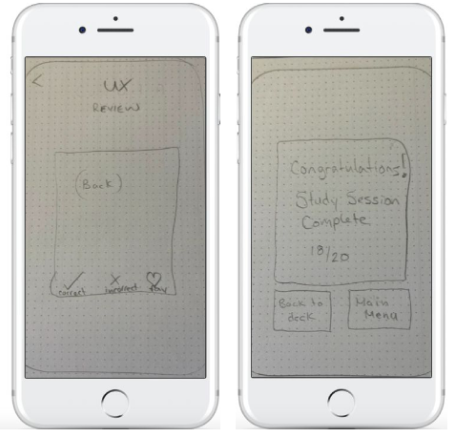 UX
REVIEW
(Back)
correct incorrect
Congratulations!
Study Session
Complete
18/20
Back to
deck
Main
Menu